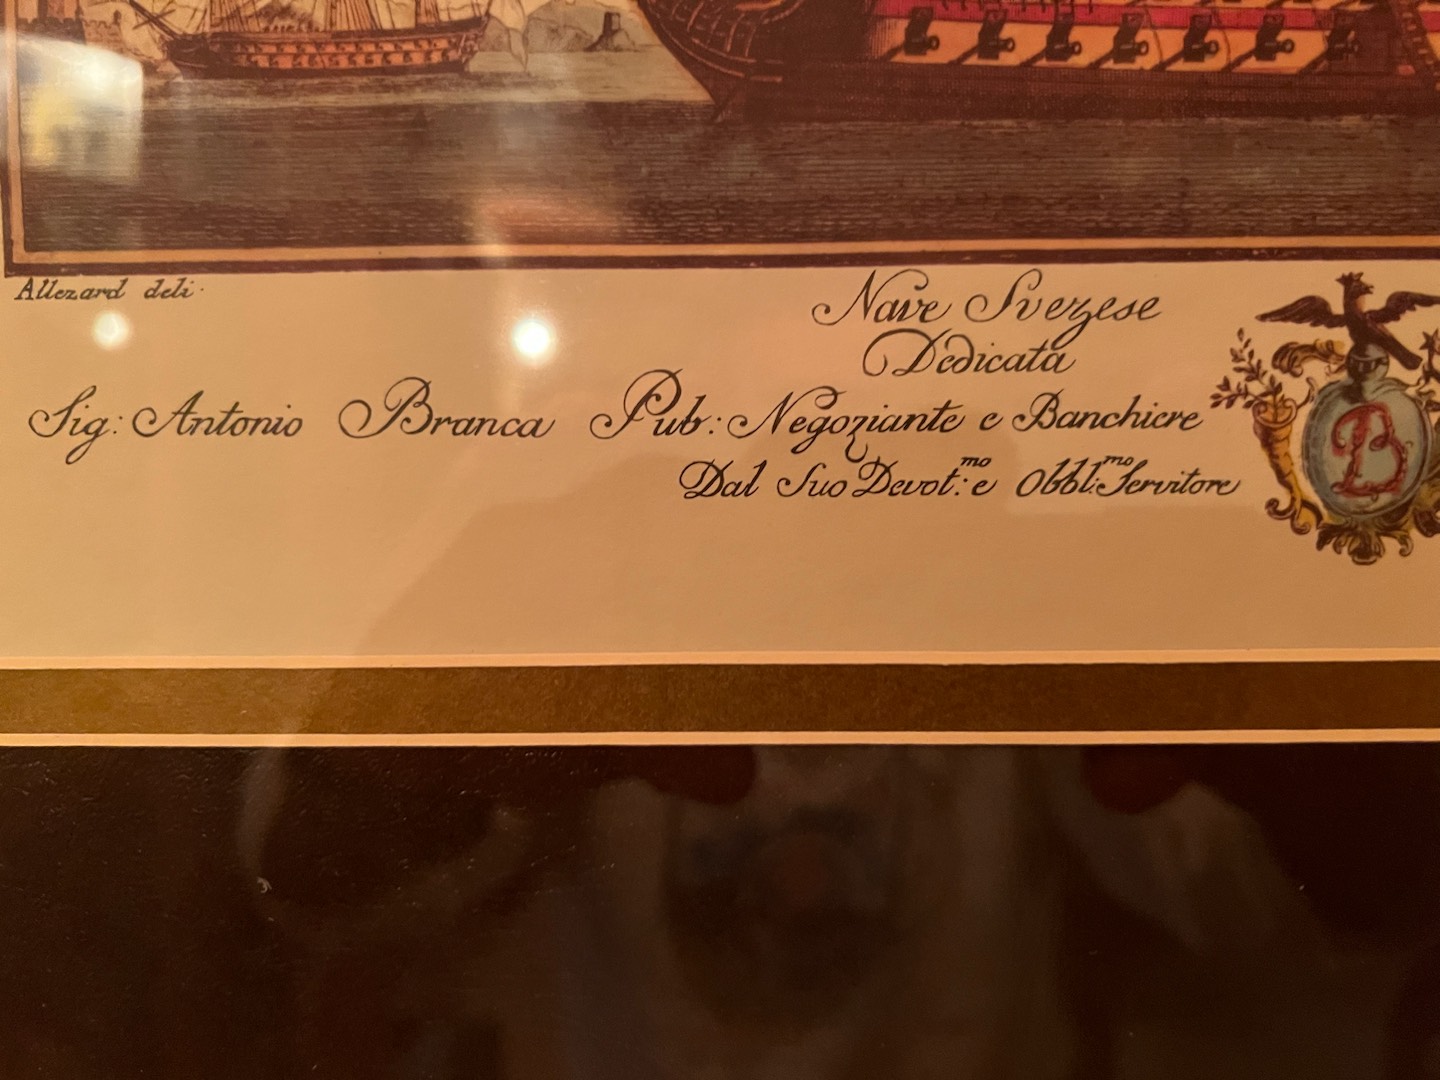 Allezard deli.
Nave Svezese
Dedicata
Sig: Antonio Branca Pub: Negoziante e Banchiere
Dal Suo Devot:mo e Obbl:mo Servitore
B